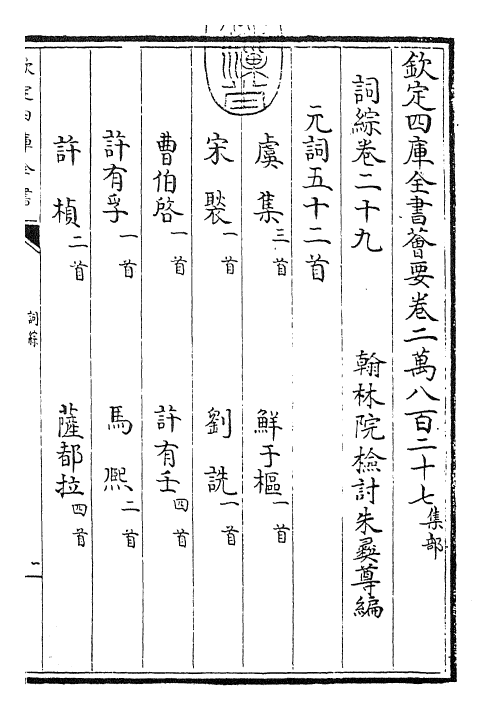 欽定四庫全書薈要卷二萬八百二十七集部
詞綜卷二十九 翰林院檢討朱彞尊編
元詞五十二首
虞集三首 鮮于樞一首
宋褧一首 劉詵一首
曹伯啓一首 許有壬四首
許有孚一首 馬熙二首
許楨二首 薩都拉四首
欽定四庫全書
詞綜